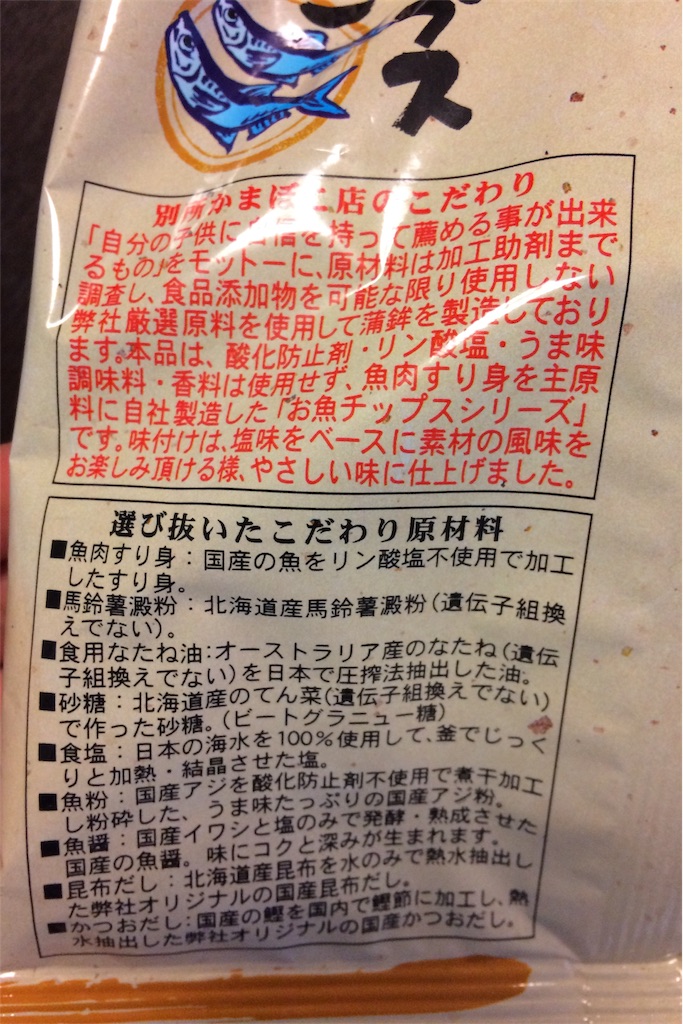 プス
別所かまぼこ店のこだわり
「自分の子供に自信を持って薦める事が出来
るもの」をモットーに、原材料は加工助剤まで
調査し、食品添加物を可能な限り使用しない
弊社厳選原料を使用して蒲鉾を製造しており
ます。本品は、酸化防止剤・リン酸塩・うま味
調味料・香料は使用せず、魚肉すり身を主原
料に自社製造した「お魚チップスシリーズ」
です。味付けは、塩味をベースに素材の風味を
お楽しみ頂ける様、やさしい味に仕上げました。
選び抜いたこだわり原材料
■魚肉すり身：国産の魚をリン酸塩不使用で加工
したすり身。
■馬鈴薯澱粉：北海道産馬鈴薯澱粉（遺伝子組換
えでない）。
■食用なたね油：オーストラリア産のなたね（遺伝
子組換えでない）を日本で圧搾法抽出した油。
■砂糖：北海道産のてん菜（遺伝子組換えでない）
で作った砂糖。（ビートグラニュー糖）
■食塩：日本の海水を100%使用して、釜でじっく
りと加熱・結晶させた塩。
■魚粉：国産アジを酸化防止剤不使用で煮干加工
し粉砕した、うま味たっぷりの国産アジ粉。
■魚醤：国産イワシと塩のみで発酵・熟成させた
国産の魚醤。味にコクと深みが生まれます。
■昆布だし：北海道産昆布を水のみで熱水抽出し
た弊社オリジナルの国産昆布だし。
■かつおだし：国産の鰹を国内で鰹節に加工し、熱
水抽出した弊社オリジナルの国産かつおだし。